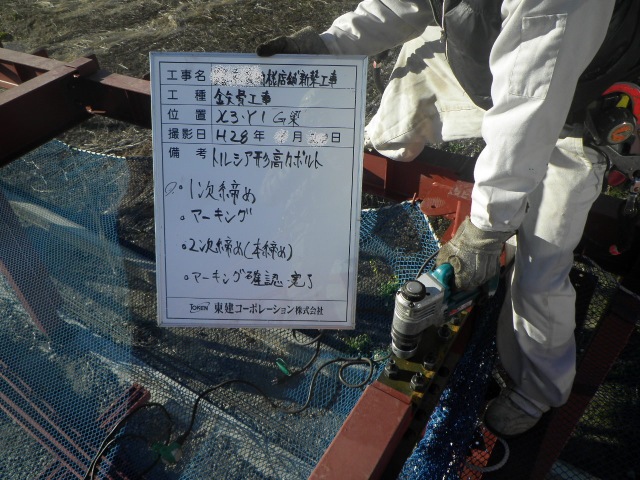 工事名 様店舗新築工事
工種 鉄骨工事
位置 X3・Y1 G梁
撮影日 H28年 日
備考 トルシア形高力ボルト
○1次締め
○マーキング
○2次締め(本締め)
○マーキング確認 完了
TOKEN 東建コーポレーション株式会社